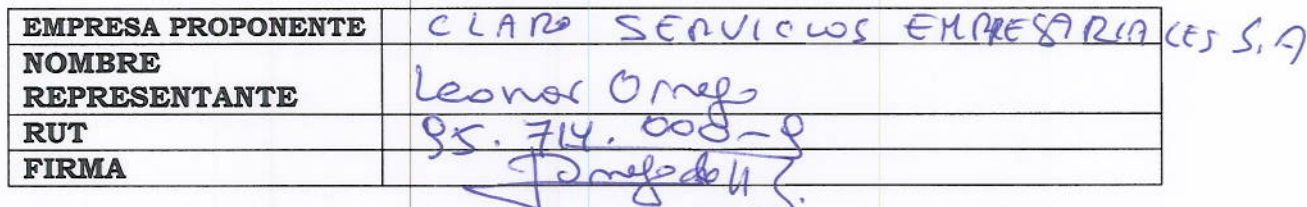 EMPRESA PROPONENTE CLARO SERVICIOS EMPRESARIALES S.A
NOMBRE
REPRESENTANTE Leonor Orrego
RUT 95.714.000-9
FIRMA